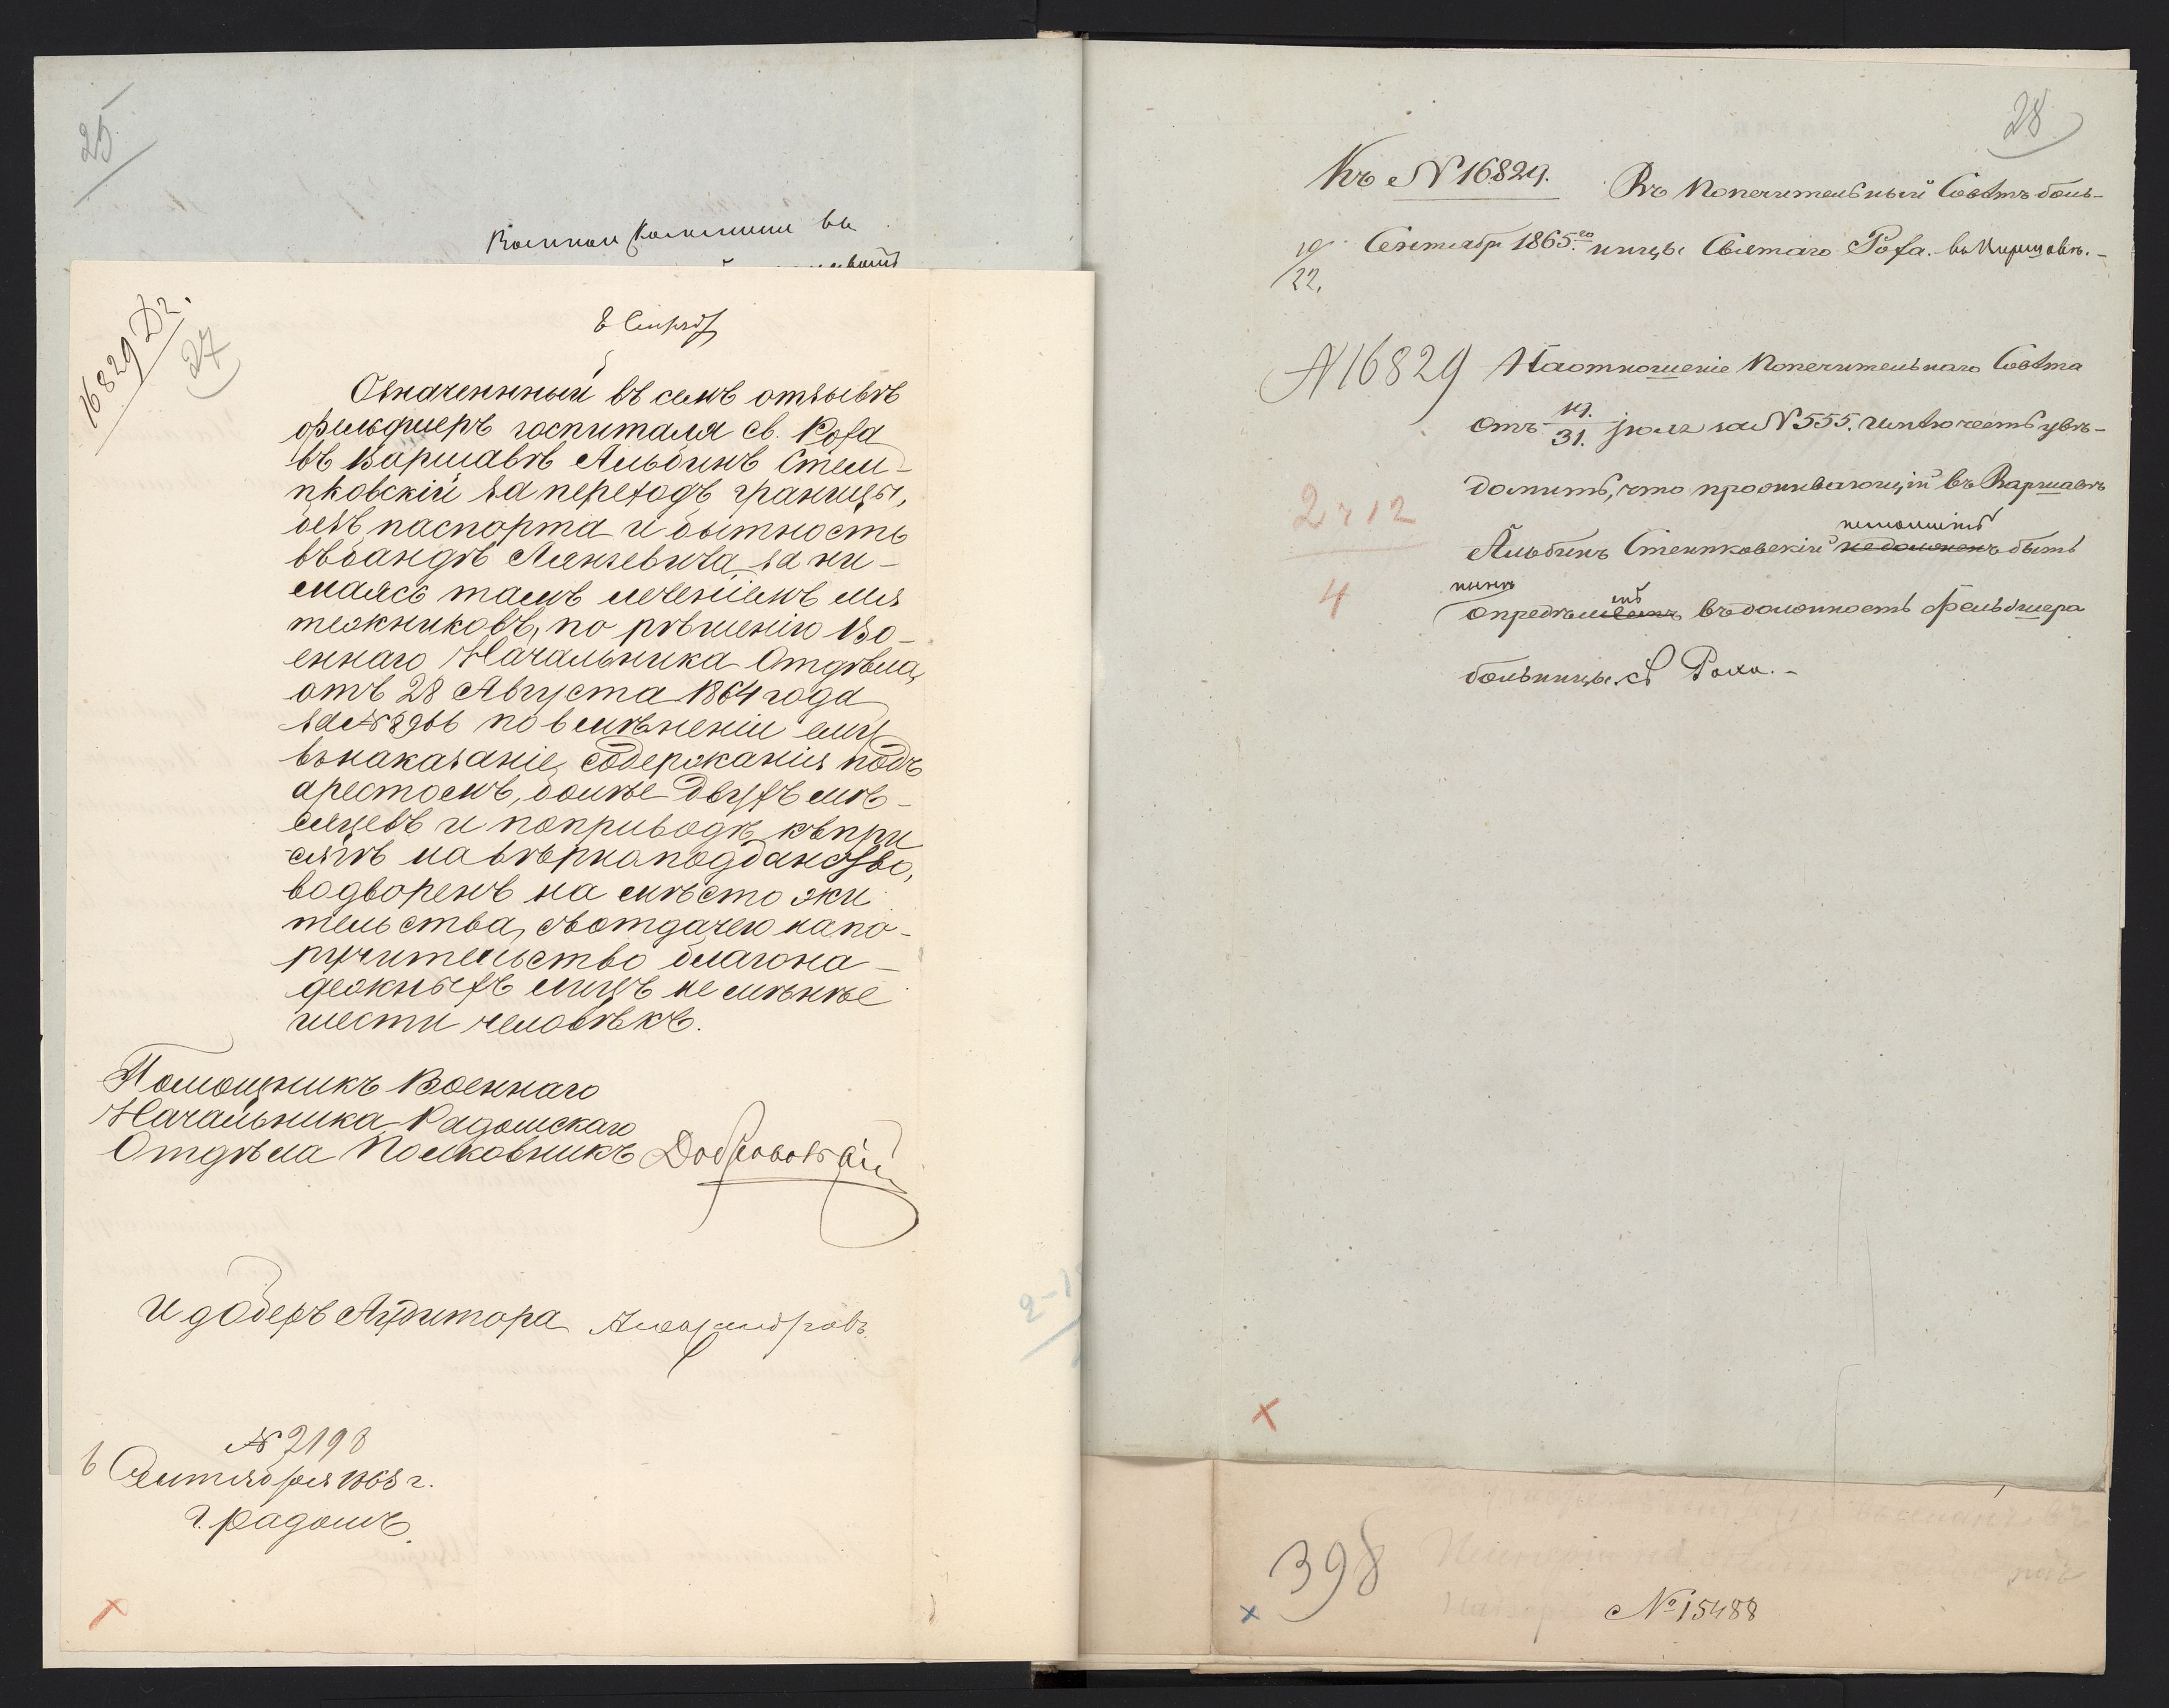 25
8 Сентяб
16829 Д2.
27
Означенный въ семъ отзывѣ
фельдшеръ госпиталя св. Роха
въ Варшавѣ Альбинъ Стем-
пковскій за переходъ границы,
безъ паспорта и бытность
въ бандѣ Лянгевича, зани-
маясь тамъ леченіемъ мя
тежниковъ, по рѣшенію Во-
еннаго Начальника Отдѣла,
отъ 28 Августа 1864 года
за № 8966 по вмѣненіи ему
въ наказаніе содержанія подъ
арестомъ, болѣе двухъ мѣ-
сяцевъ и поприводѣ къ при
сягѣ на вѣрноподданство,
водворенъ на мѣсто жи
тельства, съ отдачею на по-
ручительство благона-
дежныхъ лицъ не менѣе
шести человѣкъ.
Помощникъ Военнаго
Начальника Радомскаго
Отдѣла Полковникъ Добровольскій
И д Оберъ Аудитора Александровъ.
№ 2198
6 Сентября 1865 г.
г. Радомъ.
28
Къ № 16829.
10/22. Сентября 1865.го
Въ Попечительный Совѣтъ боль-
ницы Святаго Роха. въ Варшавѣ.-
№ 16829
На отношеніе Попечительнаго Совѣта
отъ 19/31. Іюля за № 555. имѣю честь увѣ-
домить, что проживающій въ Варшавѣ
Альбинъ Стемпковскій не долженъ быть
опредѣленъ въ должность фельдшера
больницы св Роха.-
2 ч 12
4
398
№ 15488